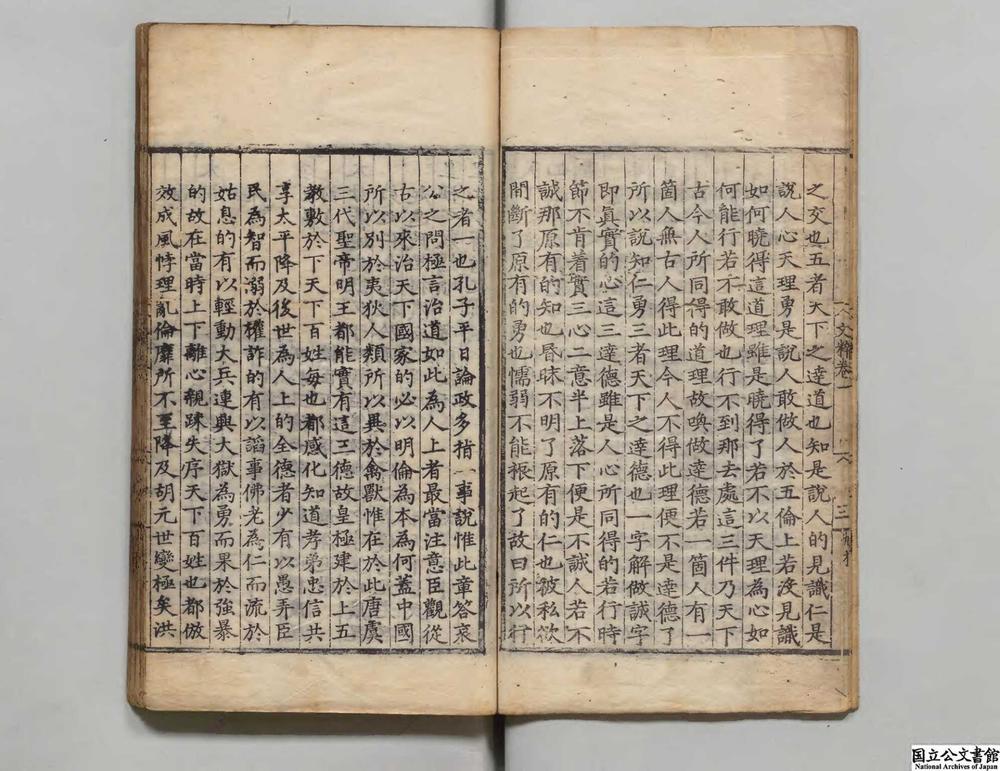 之交也五者天下之達道也知是說人的見識仁是
說人心天理勇是說人敢做人於五倫上若沒見識
如何曉得這道理雖是曉得了若不以天理為心如
何能行若不敢做也行不到那去處這三件乃天下
古今人所同得的道理故喚做達德若一箇人有一
箇人無古人得此理今人不得此理便不是達德了
所以說知仁勇三者天下之達德也一字解做誠字
即眞實的心這三達德雖是人心所同得的若行時
節不肯着實三心二意半上落下便是不誠人若不
誠那原有的知也昬昧不明了原有的仁也彼私欲
間斷了原有的勇也懦弱不能振起了故曰所以行
之者一也孔子平日論政多指一事說惟此章答哀
公之問極言治道如此為人上者最當注意臣觀從
古以來治天下國家的必以明倫為本為何蓋中國
所以別於夷狄人類所以異於禽獸惟在於此唐虞
三代聖帝明王都能實有這三德故皇極建於上五
敎敷於下天下百姓每也都感化知道孝弟忠信共
享太平降及後世為人上的全德者少有以愚弄臣
民為智而溺於權詐的有以謟事佛老為仁而流於
姑息的有以輕動大兵連興大獄為勇而果於強暴
的故在當時上下離心親踈失序天下百姓也都倣
效成風悖理亂倫靡所不至降及胡元世變極矣洪
国立公文書館
National Archives of Japan